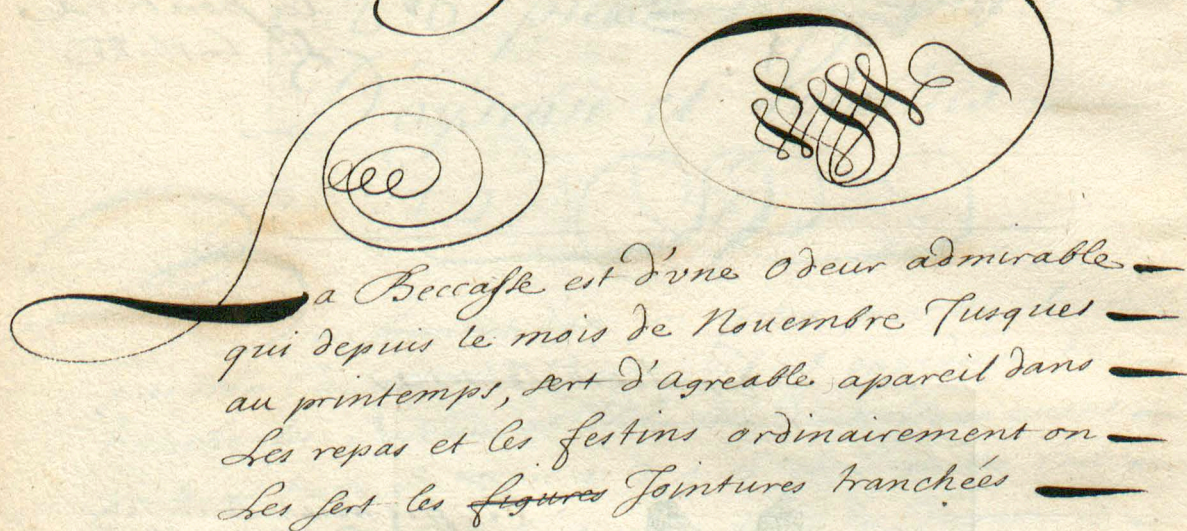 La Beccasse est d'vne Odeur admirable
qui depuis le mois de Nouembre Jusques
au printemps, sert d'agreable apareil dans
Les repas et les festins ordinairement on
Les sert les figures Jointures tranchées